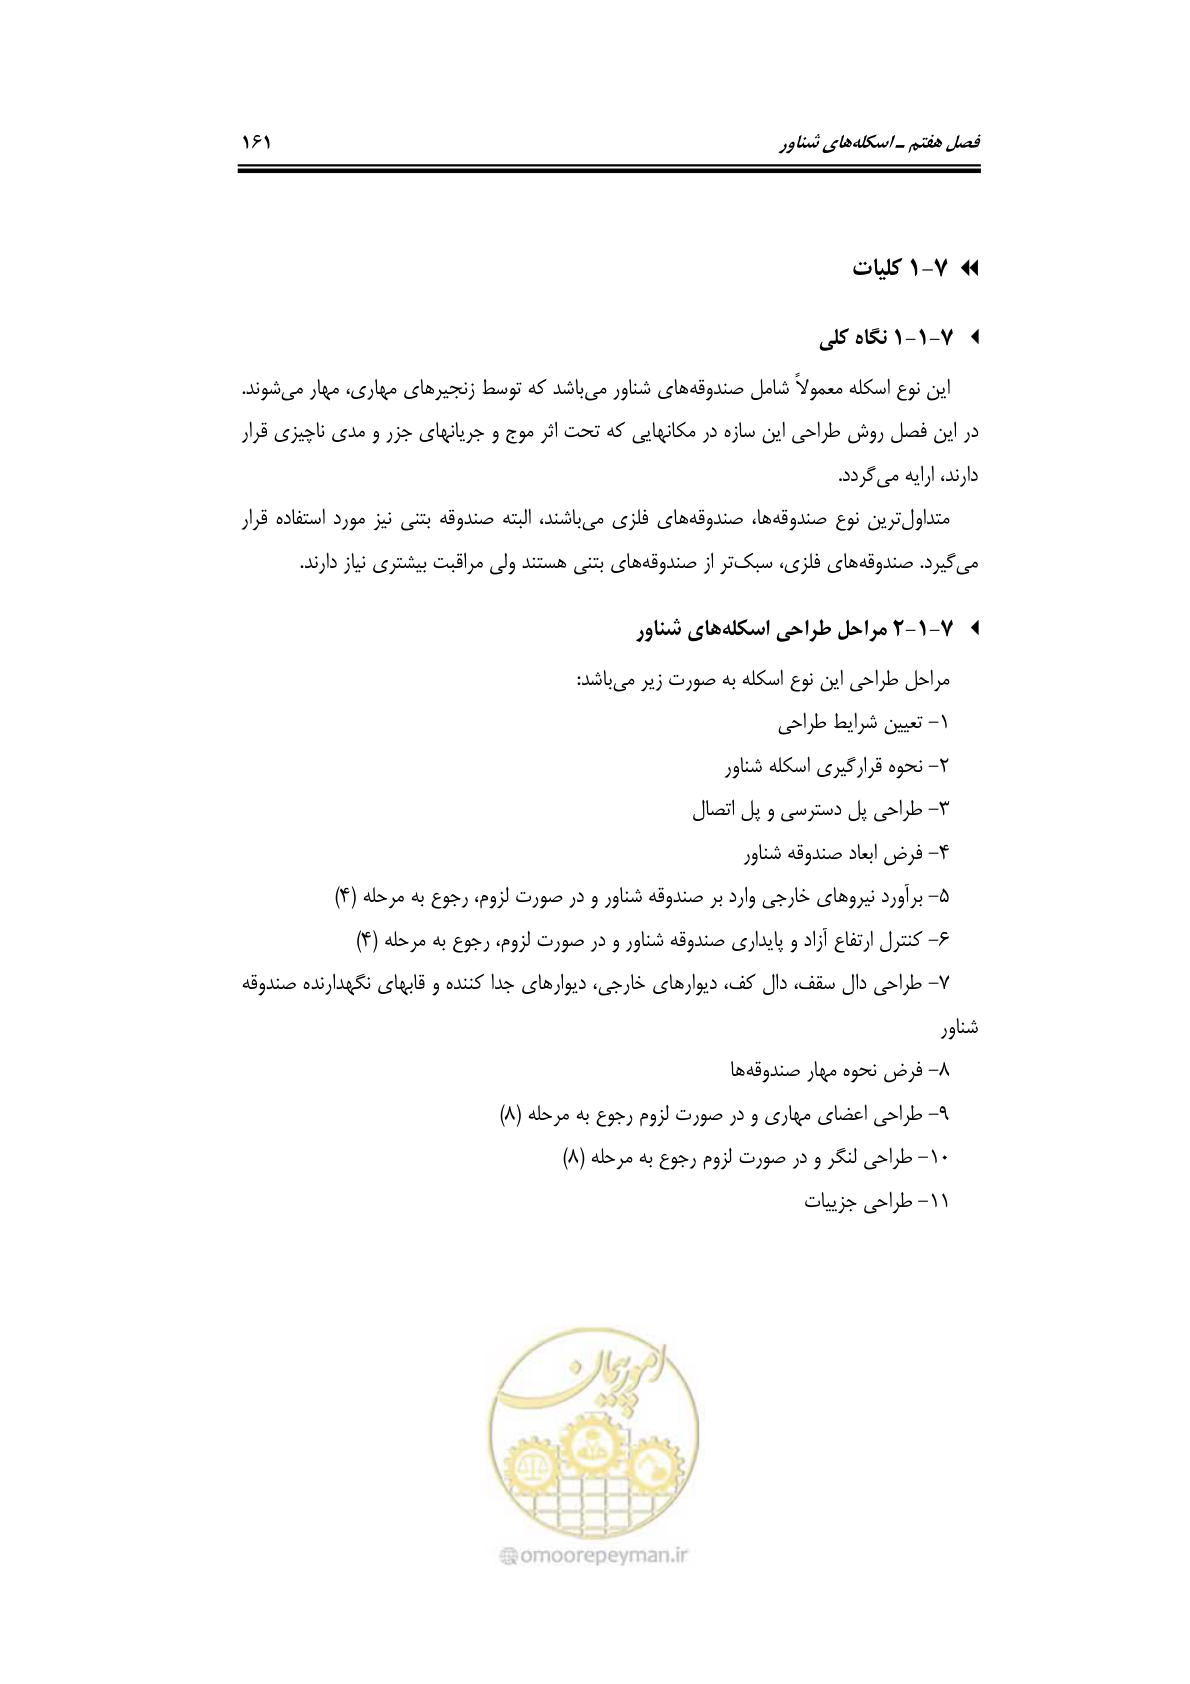 فصل هفتم ـ اسکله‌های شناور ۱۶۱
۷-۱ کلیات
۷-۱-۱ نگاه کلی
این نوع اسکله معمولاً شامل صندوقه‌های شناور می‌باشد که توسط زنجیرهای مهاری، مهار می‌شوند.
در این فصل روش طراحی این سازه در مکانهایی که تحت اثر موج و جریانهای جزر و مدی ناچیزی قرار
دارند، ارایه می‌گردد.
متداول‌ترین نوع صندوقه‌ها، صندوقه‌های فلزی می‌باشند، البته صندوقه بتنی نیز مورد استفاده قرار
می‌گیرد. صندوقه‌های فلزی، سبک‌تر از صندوقه‌های بتنی هستند ولی مراقبت بیشتری نیاز دارند.
۷-۱-۲ مراحل طراحی اسکله‌های شناور
مراحل طراحی این نوع اسکله به صورت زیر می‌باشد:
۱- تعیین شرایط طراحی
۲- نحوه قرارگیری اسکله شناور
۳- طراحی پل دسترسی و پل اتصال
۴- فرض ابعاد صندوقه شناور
۵- برآورد نیروهای خارجی وارد بر صندوقه شناور و در صورت لزوم، رجوع به مرحله (۴)
۶- کنترل ارتفاع آزاد و پایداری صندوقه شناور و در صورت لزوم، رجوع به مرحله (۴)
۷- طراحی دال سقف، دال کف، دیوارهای خارجی، دیوارهای جدا کننده و قابهای نگهدارنده صندوقه
شناور
۸- فرض نحوه مهار صندوقه‌ها
۹- طراحی اعضای مهاری و در صورت لزوم رجوع به مرحله (۸)
۱۰- طراحی لنگر و در صورت لزوم رجوع به مرحله (۸)
۱۱- طراحی جزییات
امور پیمان
@omoorepeyman.ir